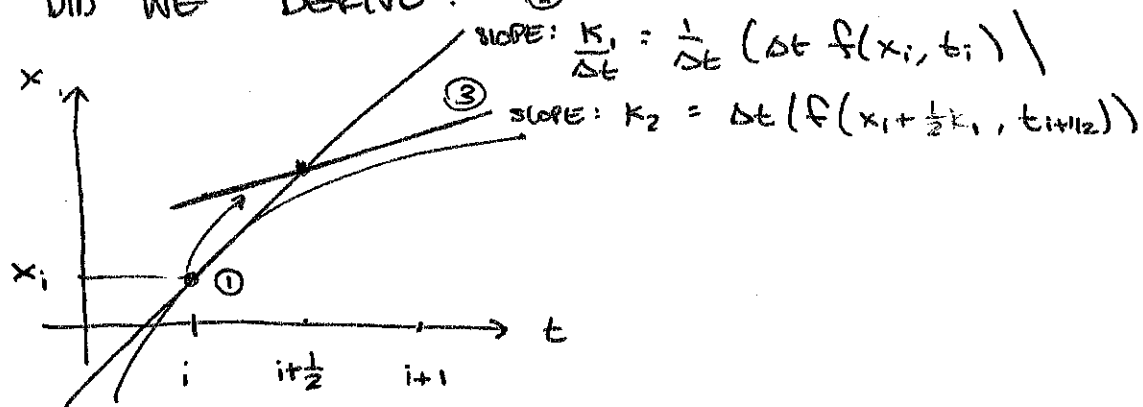 DID WE DERIVE?
SLOPE: K₁/Δt = 1/Δt (Δt f(xᵢ, tᵢ) \
③
SLOPE: K₂ = Δt(f(xᵢ + ½K₁, tᵢ₊₁/₂))
x
xᵢ
①
t
i i+½ i+1